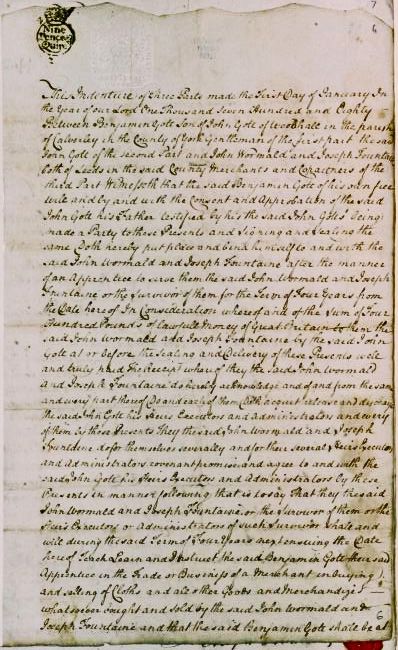 7
6
Nine
Pence
Quire
This Indenture of three Parts made the First Day of January In
the Year of our Lord One Thousand Seven Hundred and Eighty
Between Benjamin Gott Son of John Gott of Woodhall in the parish
of Calverley in the County of York Gentleman of the first part the said
John Gott of the second Part and John Wormald and Joseph Fountaine
both of Leeds in the said County Merchants and Copartners of the
third Part Witnesseth that the said Benjamin Gott of his own free
will and by and with the Consent and Approbation of the said
John Gott his Father testified by his the said John Gotts being
made a Party to these Presents and Signing and Sealing the
same Doth hereby put place and bind himself to and with the
said John Wormald and Joseph Fountaine after the manner
of an Apprentice to serve them the said John Wormald and Joseph
Fountaine or the Survivor of them for the Term of Four Years from
the Date here of In Consideration where of and of the Sum of Four
Hundred Pounds of lawfull Money of Great Britain to them the
said John Wormald and Joseph Fountaine by the said John
Gott at or before the Sealing and Delivery of these Presents well
and truly paid the Receipt where of they the said John Wormald
and Joseph Fountaine do hereby acknowledge and of and from the same
and every part thereof Do and each of them Doth acquit release and discharge
the said John Gott his Heirs Executors and Administrators and every
of them by these Presents They the said John Wormald and Joseph
Fountaine do for themselves severally and for their several Heirs Executors
and Administrators covenant promise and agree to and with the
said John Gott his Heirs Executors and Administrators by these
Presents in manner following that is to say That they the said
John Wormald and Joseph Fountaine or the Survivor of them or the
Heirs Executors or Administrators of such Survivor shall and
will during the said Term of Four Years next ensuing the Date
here of Teach Learn and Instruct the said Benjamin Gott their said
Apprentice in the Trade or Business of a Merchant in buying
and selling of Cloths and all other Goods and Merchandizes
whatsoever bought and sold by the said John Wormald and
Joseph Fountaine and that the said Benjamin Gott shall be at